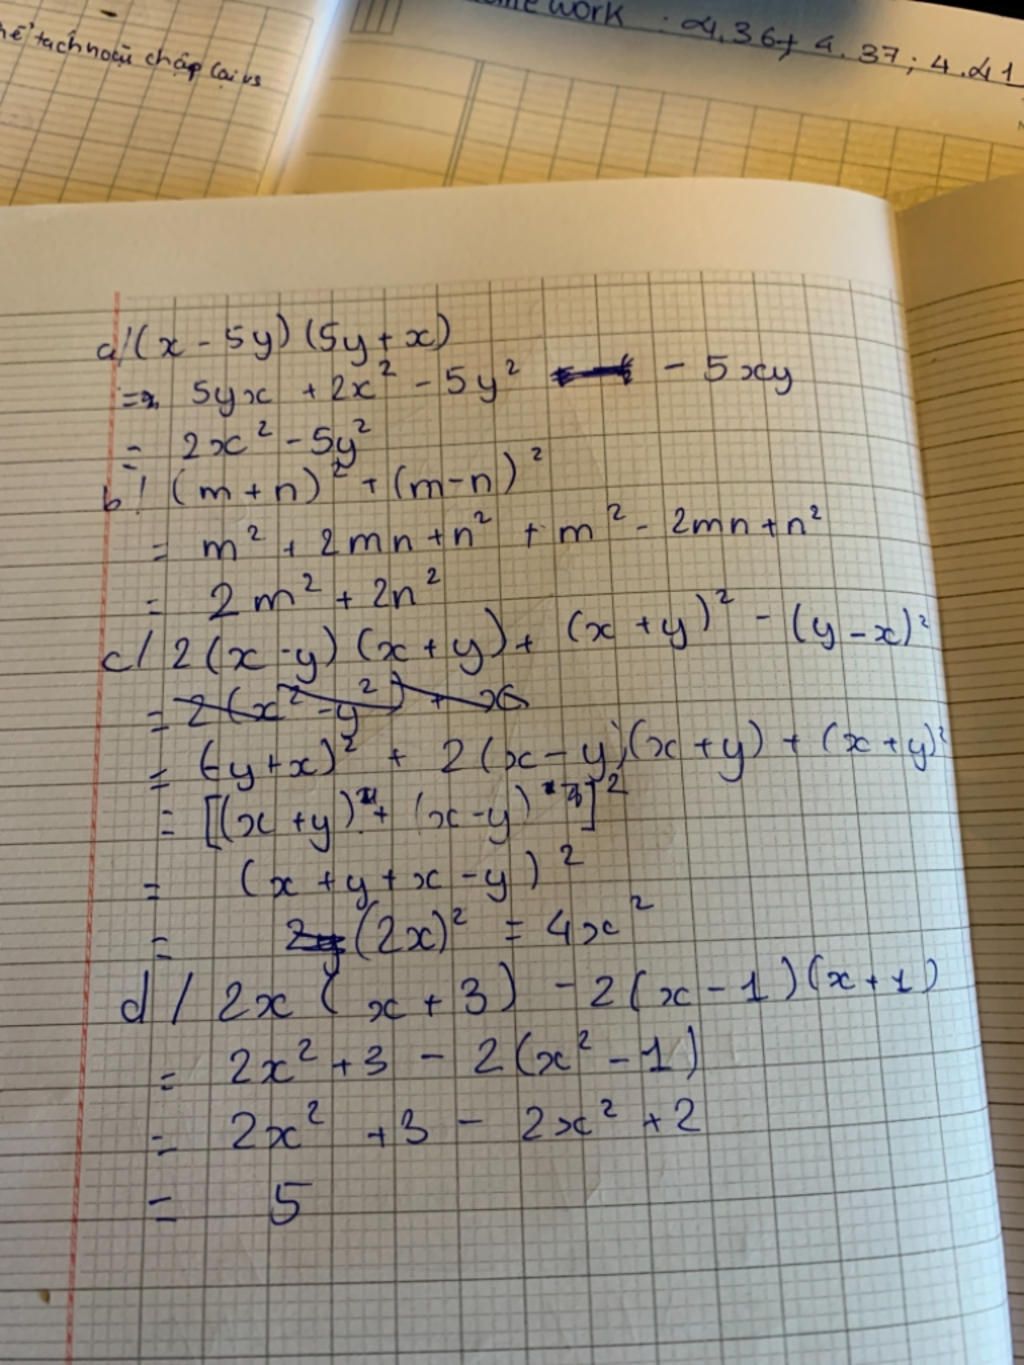 tách nơi chập lại vs
work : 4.36; 4.37; 4.41
a/ (x - 5y) (5y + x)
= 5yx + 2x² - 5y² - 5xy
= 2x² - 5y²
b/ (m + n)² + (m - n)²
= m² + 2mn + n² + m² - 2mn + n²
= 2m² + 2n²
c/ 2(x - y) (x + y) + (x + y)² - (y - x)²
= 2(x² - y²) + x
= (-y + x)² + 2(x - y)(x + y) + (x + y)²
= [(x + y) + (x - y)]²
= (x + y + x - y)²
= (2x)² = 4x²
d/ 2x (x + 3) - 2(x - 1)(x + 1)
= 2x² + 3 - 2(x² - 1)
= 2x² + 3 - 2x² + 2
= 5